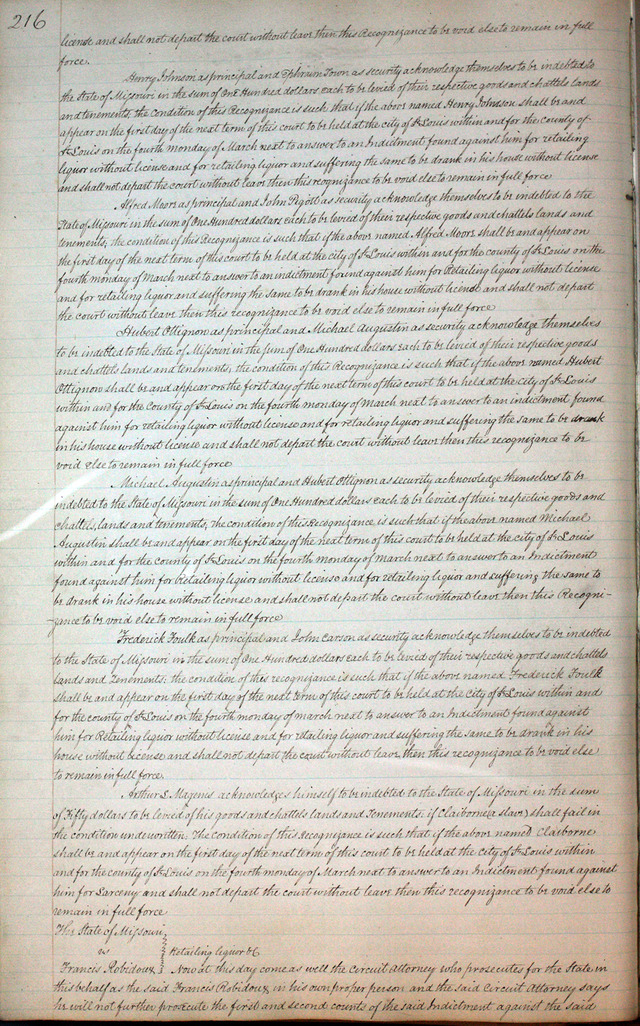 216
license and shall not depart the court without leave then this Recognizance to be void else to remain in full
force.
Henry Johnson as principal and Ephraim Town as security acknowledge themselves to be indebted to
the State of Missouri in the sum of One Hundred dollars each to be levied of their respective goods and chattels lands
and tenements, the condition of this Recognizance is such that if the above named Henry Johnson shall be and
appear on the first day of the next term of this court to be held at the city of St Louis within and for the county of
St Louis on the fourth monday of March next to answer to an Indictment found against him for retailing
liquor without license and for retailing liquor and suffering the same to be drank in his house without license
and shall not depart the court without leave then this recognizance to be void else to remain in full force
Alfred Moore as principal and John Pigott as security acknowledge themselves to be indebted to the
State of Missouri in the sum of One Hundred dollars each to be levied of their respective goods and chattels lands and
tenements, the condition of this Recognizance is such that if the above named Alfred Moore shall be and appear on
the first day of the next term of this court to be held at the city of St Louis within and for the county of St Louis on the
fourth monday of March next to answer to an indictment found against him for Retailing liquor without license
and for retailing liquor and suffering the same to be drank in his house without license and shall not depart
the court without leave then this recognizance to be void else to remain in full force
Hubert Ottignon as principal and Michael Augustin as security acknowledge themselves
to be indebted to the State of Missouri in the sum of One Hundred dollars each to be levied of their respective goods
and chattels lands and tenements, the condition of this Recognizance is such that if the above named Hubert
Ottignow shall be and appear on the first day of the next term of this court to be held at the city of St Louis
within and for the County of St Louis on the fourth monday of March next to answer to an indictment found
against him for retailing liquor without license and for retailing liquor and suffering the same to be drank
in his house without license and shall not depart the court without leave then this recognizance to be
void else to remain in full force
Michael Augustin as principal and Hubert Ottignon as security acknowledge themselves to be
indebted to the State of Missouri in the sum of One Hundred dollars each to be levied of their respective goods and
chattels, lands and tenements, the condition of this Recognizance is such that if the above named Michael
Augustin shall be and appear on the first day of the next term of this court to be held at the city of St Louis
within and for the county of St Louis on the fourth monday of march next to answer to an Indictment
found against him for Retailing liquor without license and for retailing liquor and suffering the same to
be drank in his house without license and shall not depart the court without leave then this Recogni-
zance to be void else to remain in full force
Frederick Foulk as principal and John Carson as security acknowledge themselves to be indebted
to the State of Missouri in the sum of One Hundred dollars each to be levied of their respective goods and chattels
lands and Tenements, the condition of this recognizance is such that if the above named Frederick Foulk
shall be and appear on the first day of the next term of this court to be held at the City of St Louis within and
for the county of St Louis on the fourth monday of march next to answer to an Indictment found against
him for Retailing liquor without license and for retailing liquor and suffering the same to be drank in his
house without license and shall not depart the court without leave then this recognizance to be void else
to remain in full force.
Arthur L. Magenis acknowledges himself to be indebted to the State of Missouri in the sum
of Fifty dollars to be levied of his goods and chattels lands and Tenements if Claiborne (a slave) shall fail in
the condition underwritten. The condition of this Recognizance is such that if the above named Claiborne
shall be and appear on the first day of the next term of this court to be held at the City of St Louis within
and for the county of St Louis on the fourth monday of March next to answer to an Indictment found against
him for Larceny and shall not depart the court without leave then this recognizance to be void else to
remain in full force
The State of Missouri
vs
Retailing liquor &c
Francis Robidoux Now at this day come as well the Circuit Attorney who prosecutes for the State in
this behalf as the said Francis Robidoux in his own proper person and the said Circuit Attorney says
he will not further prosecute the first and second counts of the said Indictment against the said